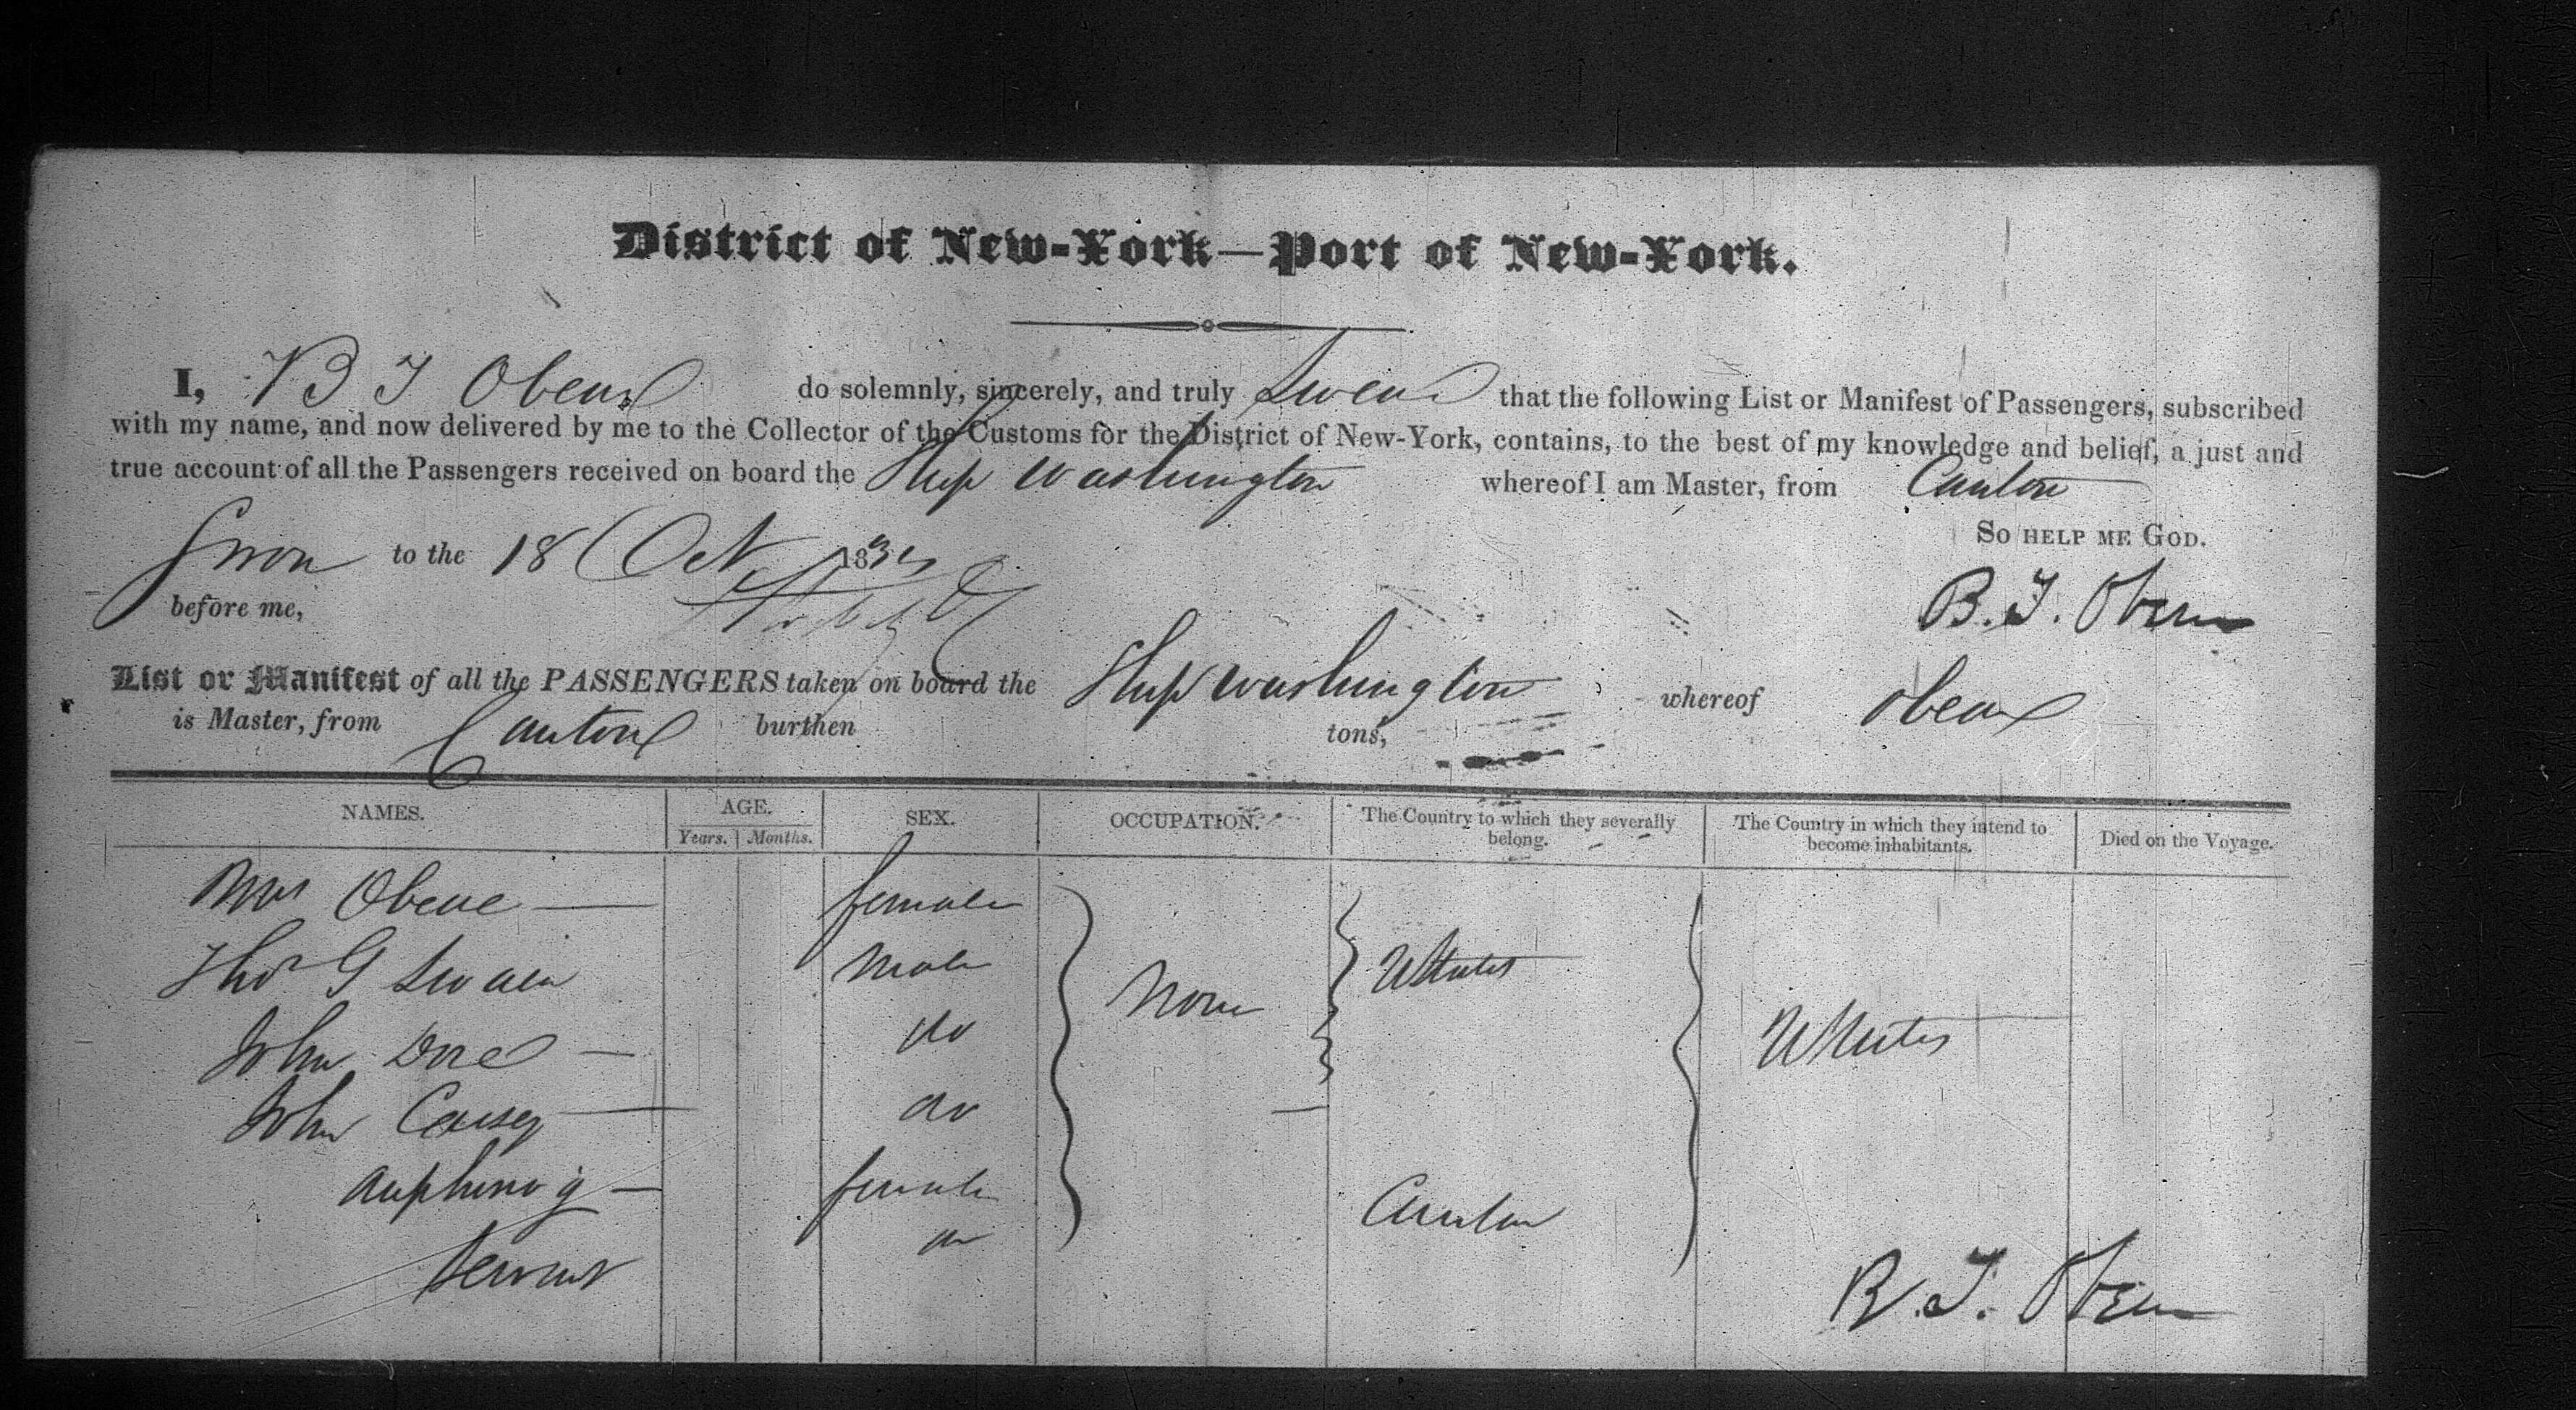 District of New-York—Port of New-York.
I, B T Obear do solemnly, sincerely, and truly Swear that the following List or Manifest of Passengers, subscribed
with my name, and now delivered by me to the Collector of the Customs for the District of New-York, contains, to the best of my knowledge and belief, a just and
true account of all the Passengers received on board the Ship Washington whereof I am Master, from Canton
So help me God.
Swon to the 18 Oct 1834
before me,
B. T. Obear
List or Manifest of all the PASSENGERS taken on board the Ship Washington whereof Obear
is Master, from Canton burthen tons,
NAMES. AGE. SEX. OCCUPATION. The Country to which they severally belong. The Country in which they intend to become inhabitants. Died on the Voyage.
Years. Months.
Mrs Obear — female
Thos G Swain male UStates
John Doe — do None UStates
John Causey — do
Auphinoy — female Canton
Servant do
B. T. Obear